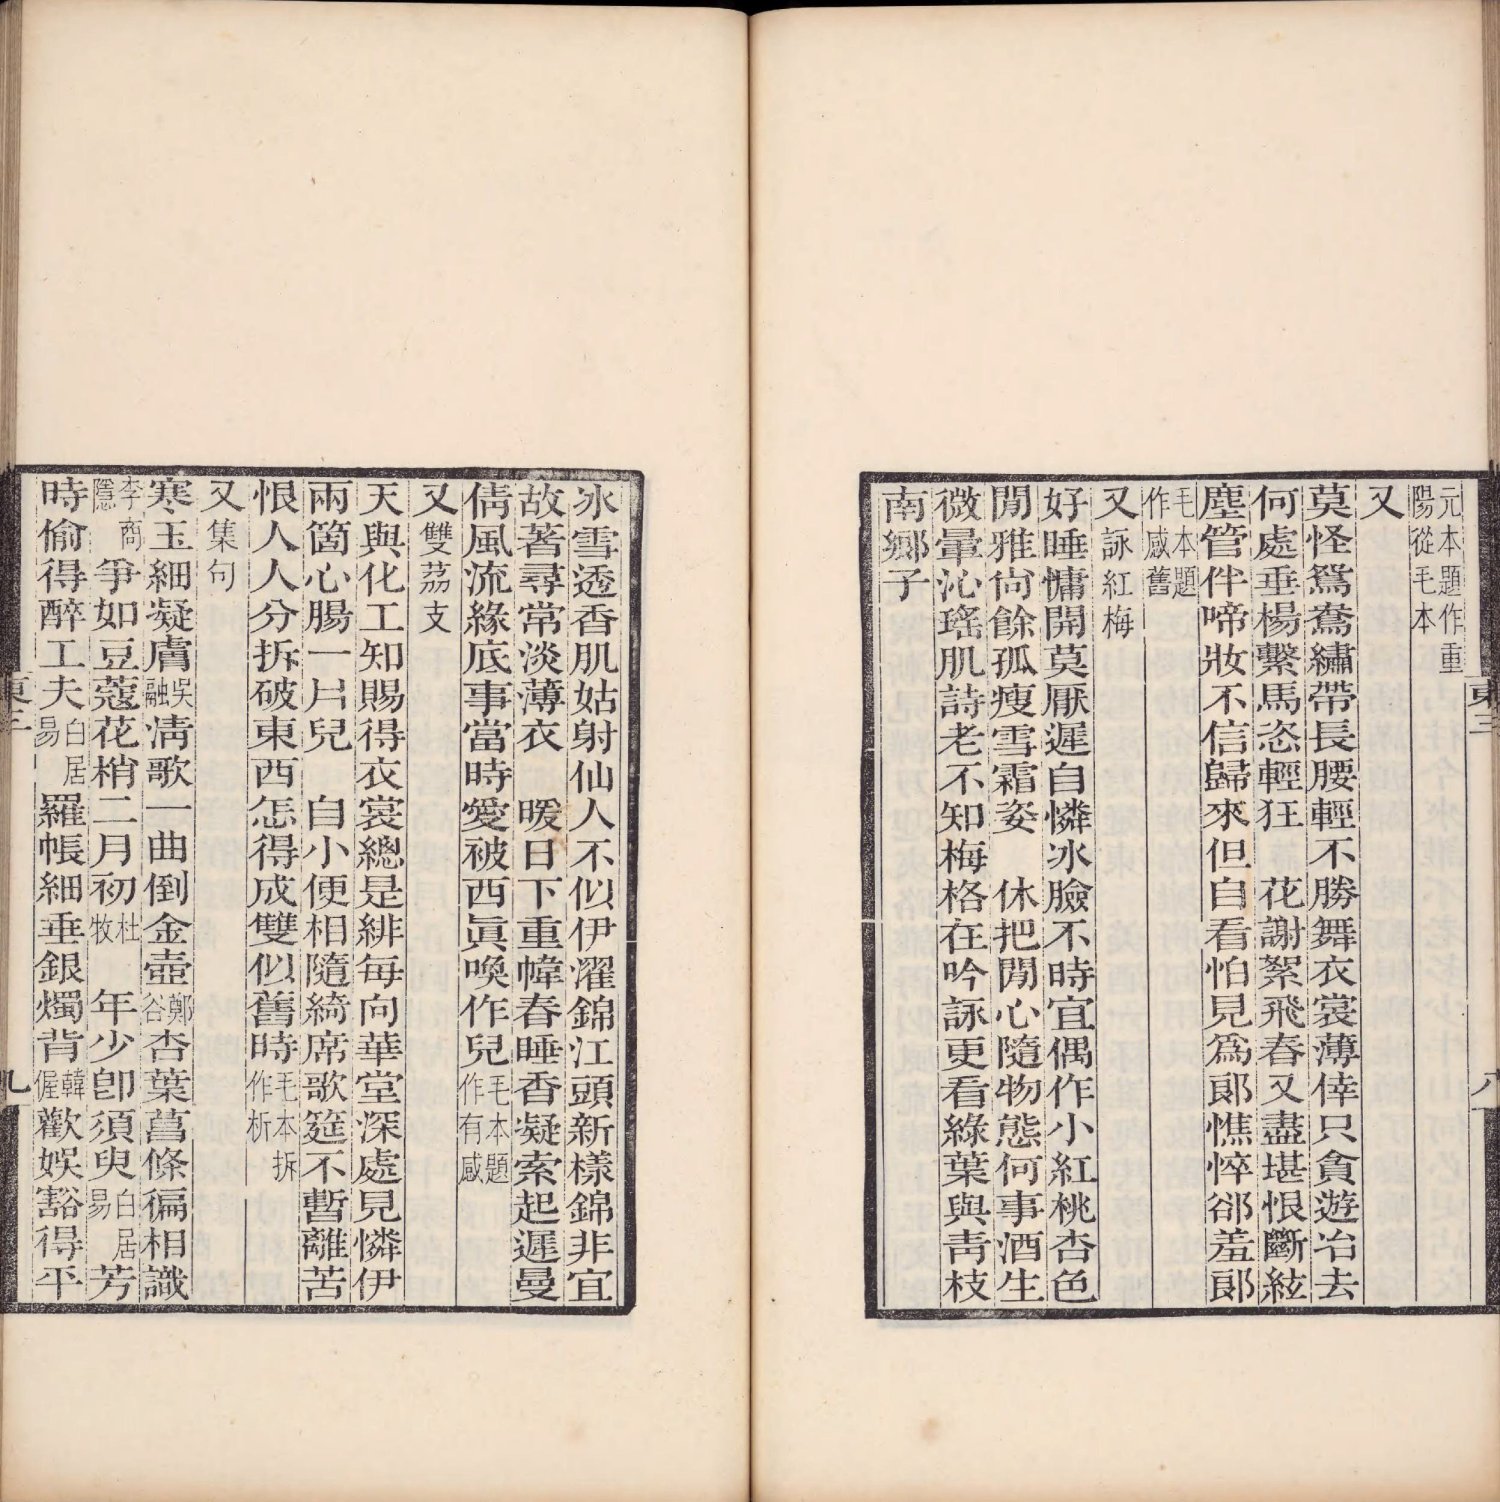 元本題作重
陽從毛本
又
莫怪鴛鴦繡帶長腰輕不勝舞衣裳薄倖只貪遊冶去
何處垂楊繫馬恣輕狂　花謝絮飛春又盡堪恨斷絃
塵管伴啼妝不信歸來但自看怕見爲郎憔悴郤羞郎
毛本題
作感舊
又詠紅梅
好睡慵開莫厭遲自憐冰臉不時宜偶作小紅桃杏色
閒雅尙餘孤瘦雪霜姿　休把閒心隨物態何事酒生
微暈沁瑤肌詩老不知梅格在吟詠更看綠葉與靑枝
南鄉子
東三
八
冰雪透香肌姑射仙人不似伊濯錦江頭新樣錦非宜
故著尋常淡薄衣　暖日下重幃春睡香凝索起遲曼
倩風流緣底事當時愛被西眞喚作兒毛本題
作有感
又雙荔支
天與化工知賜得衣裳總是緋每向華堂深處見憐伊
兩箇心腸一片兒　自小便相隨綺席歌筵不暫離苦
恨人人分拆破東西怎得成雙似舊時毛本拆
作析
又集句
寒玉細凝膚吳融淸歌一曲倒金壺鄭谷杏葉菖條徧相識
李商隱　爭如豆蔻花梢二月初杜牧　年少卽須臾白居易芳
時偷得醉工夫白居易羅帳細垂銀燭背韓偓歡娛豁得平
東三
九